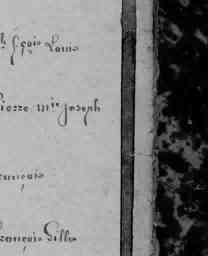 h fçois Louis
ierre mie joseph
rancois
rancois Gilles